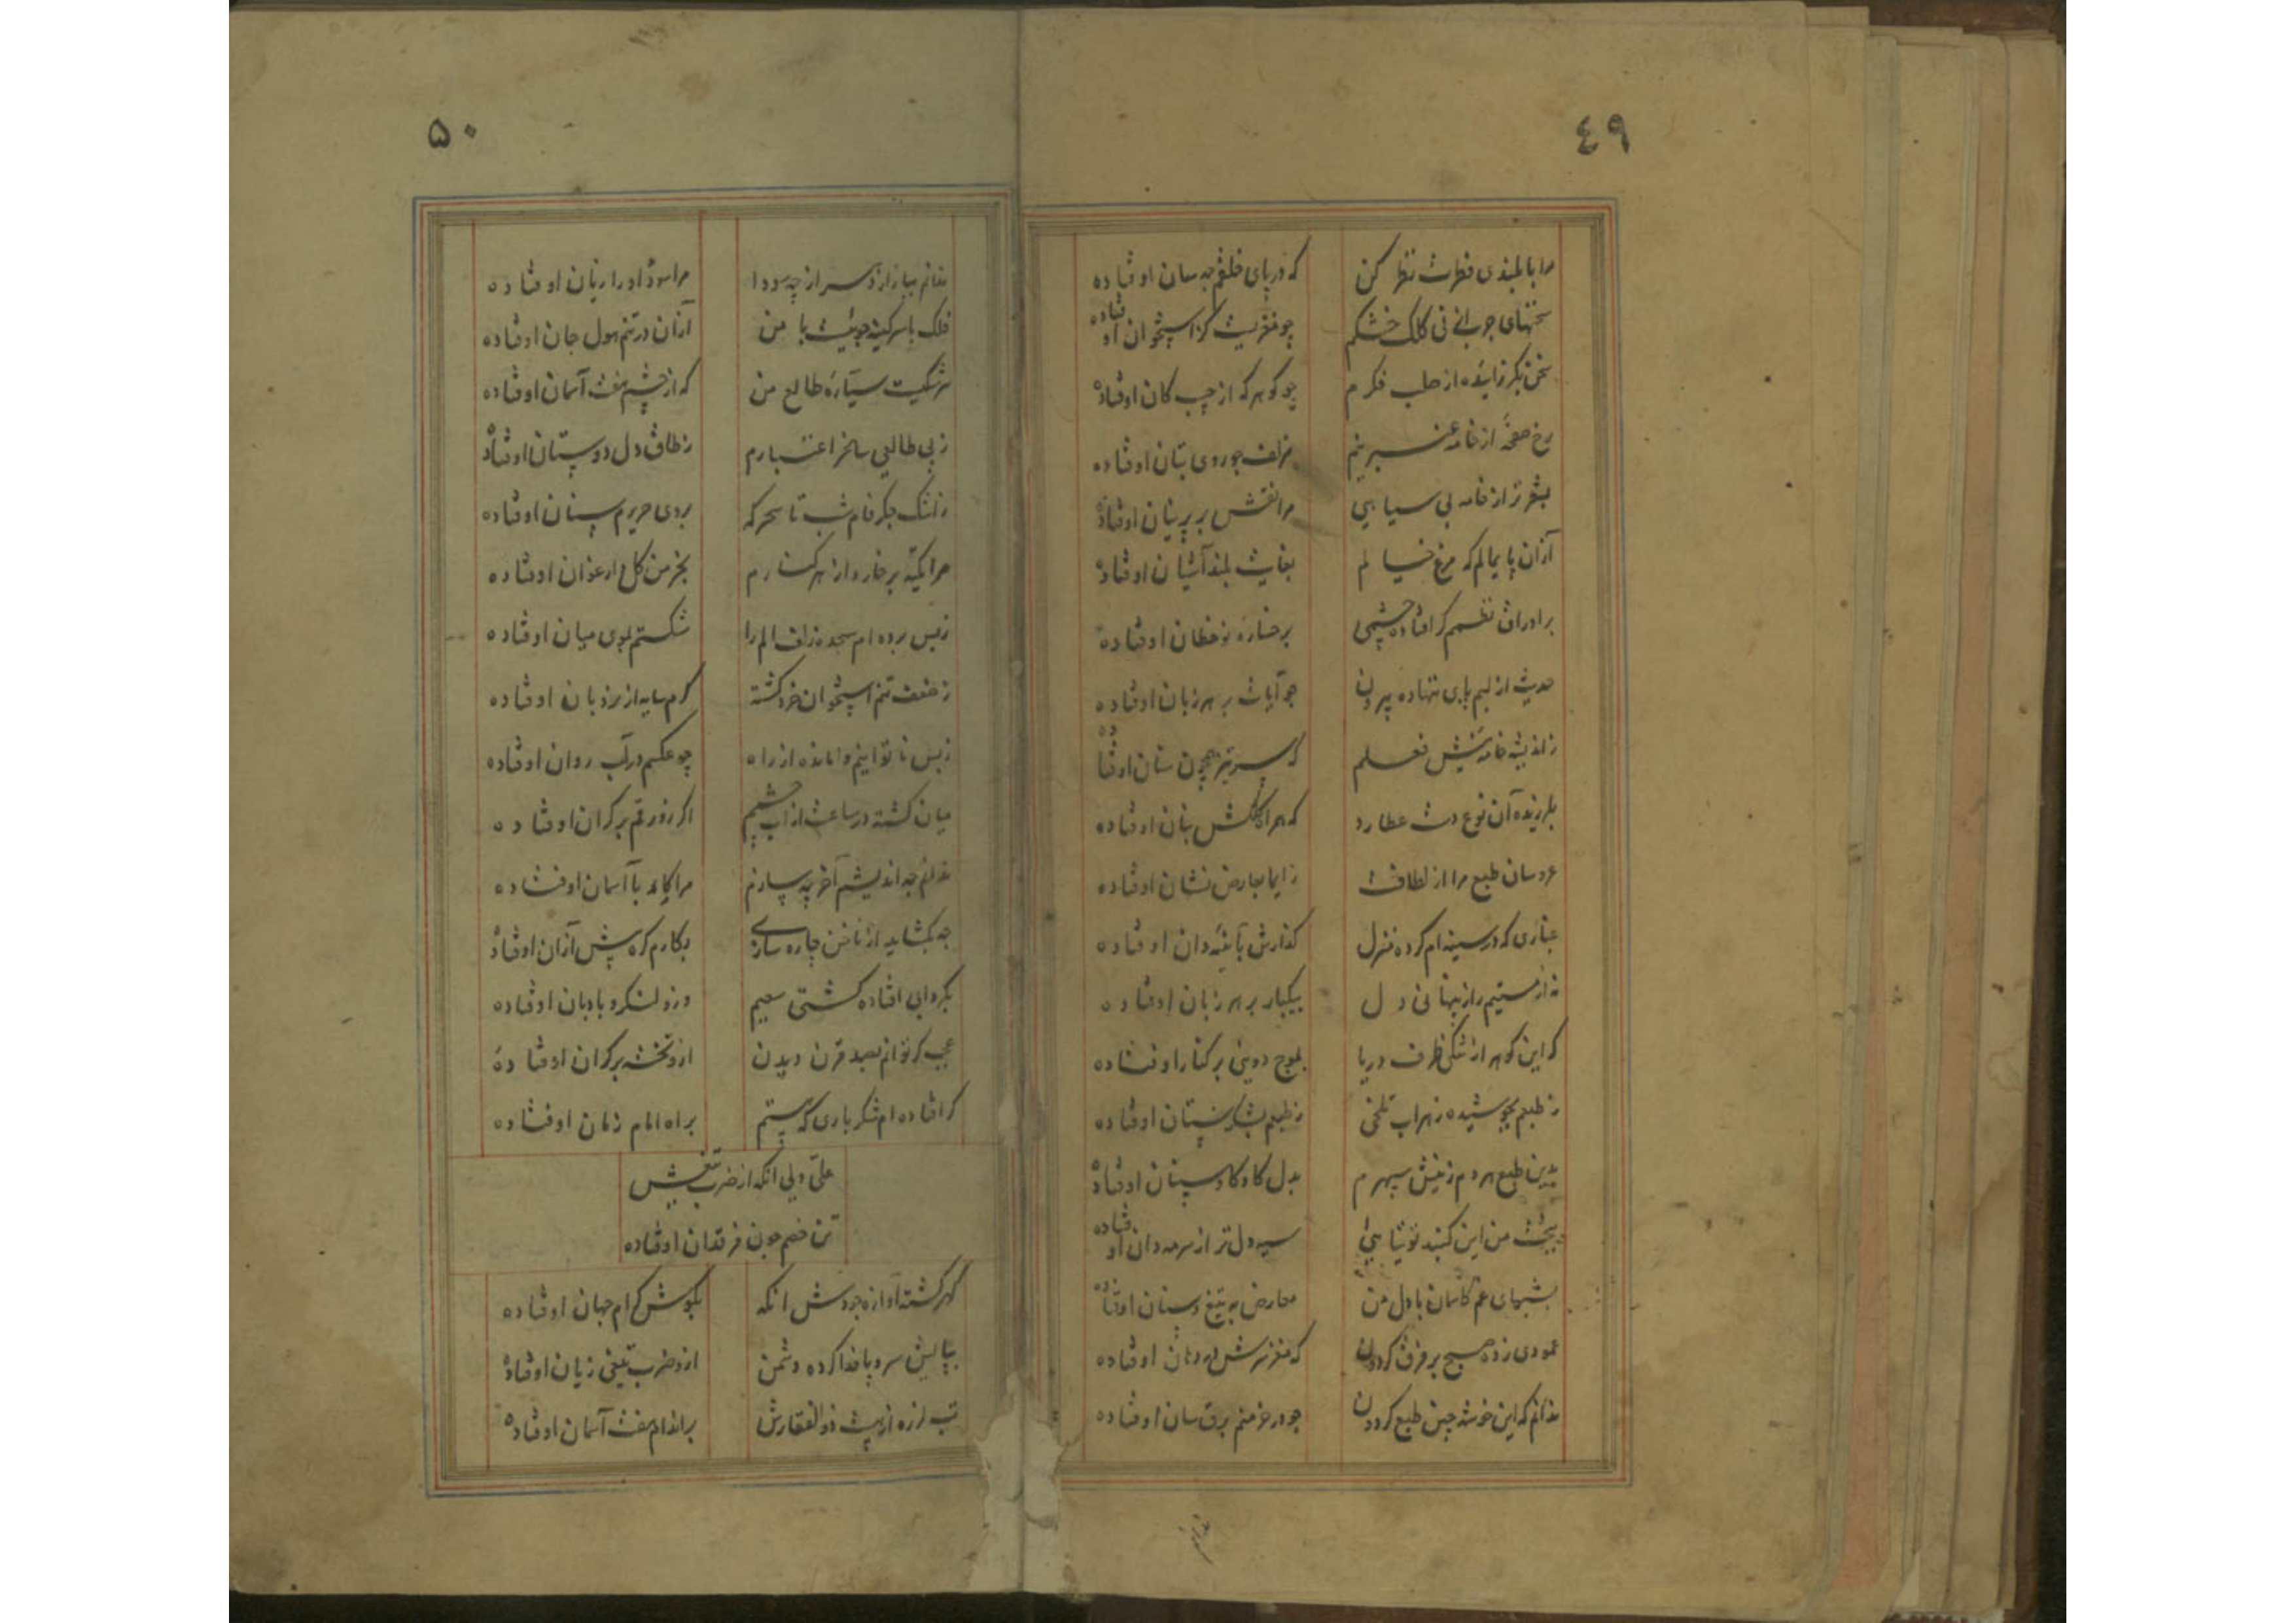 ٤٩
مرا با بلندی فطرت نظر کن که در پای خلقم چه سان اوفتاده
سخنهای چرب از نی کلک خشکم چو مغزیست کز استخوان اوفتاده
سخن بکر زاینده از صلب فکرم چو گوهر که از جیب کان اوفتاده
رخ صفحه از خامه عنبرینم مزلف چو روی بتان اوفتاده
بشعر تر از خامه بی سیاهی مرا نقش بر پرنیان اوفتاده
ازان پایمالم که مرغ خیالم بغایت بلند آشیان اوفتاده
بر اوراق نظمم گر افتاده چشمی بر خساره نوخطان اوفتاده
حدیث از لبم پای ننهاده بیرون چو آیات بر هر زبان اوفتاده
ز اندیشه خامه نیش فعلم که سر تیز همچون سنان اوفتاده
بلرزیده آن نوع دست عطارد که هر کلکش بنان اوفتاده
عروسان طبع مرا از لطافت ز ایما بعارض نشان اوفتاده
غباری که در سینه ام کرده منزل گذارش بآئینه دان اوفتاده
نه از مستیم راز پنهانی دل بیکبار بر هر زبان اوفتاده
که این گوهر از تنگی ظرف دریا بموج دویی بر کنار اوفتاده
ز طبعم بجوشیده زهراب تلخی ز طبعم بشکرستان اوفتاده
بدین طبع هر دم ز نیش سپهرم بدل کاو کاو سنان اوفتاده
ببخت من این گنبد توتیائی سیه دل تر از سرمه دان اوفتاده
بشبهای غم کاسمان با دل من معارض به تیغ و سنان اوفتاده
عمودی زده صبح بر فرق گردون که مغز سرش در دهان اوفتاده
ندانم که این خوشه چین طبع گردون چو در خرمنم برق سان اوفتاده
۵۰
ندانم ببازار دهر از چه سودا مرا سود او را زیان اوفتاده
فلک با سر کینه جوئیست با من ازان در تنم هول جان اوفتاده
سرشکیست سیاره طالع من که از چشم هفت آسمان اوفتاده
ز بی طالعی ساغر اعتبارم ز طاق دل دوستان اوفتاده
ز اشک جگر فام شب تا سحرگه بروی حریرم سنان اوفتاده
مرا تکیه بر خار و از هر کنارم بخرمن گل ارغوان اوفتاده
ز بس برده ام سجده زلف الم را شکستم بموی میان اوفتاده
ز ضعف تنم استخوان خرد گشته گرم سایه از نردبان اوفتاده
ز بس ناتوانیم وامانده از راه چو عکسم در آب روان اوفتاده
میان گشته در ساعت از آب چشمم اگر زورقم بر کران اوفتاده
ندانم چه اندیشم آخر چه سازم مرا کار با آسمان اوفتاده
چه بگشاید از ناخن چاره سازی بکارم گره بیش ازان اوفتاده
بگردابی افتاده کشتی سعیم درو لنگر و بادبان اوفتاده
عجب گر توانم بصد قرن دیدن ازو تخته بر کران اوفتاده
گر افتاده ام شکر باری که هستم براه امام زمان اوفتاده
علی ولی آنکه از ضرب تیغش
تن خصم چون فرقدان اوفتاده
گهر گشته آوازه جودش آنکه بگوش کرام جهان اوفتاده
بپالیش سر و پا فدا کرده دشمن ازو ضرب تیغی زیان اوفتاده
تب لرزه از هیبت ذوالفقارش بر اندام هفت آسمان اوفتاده